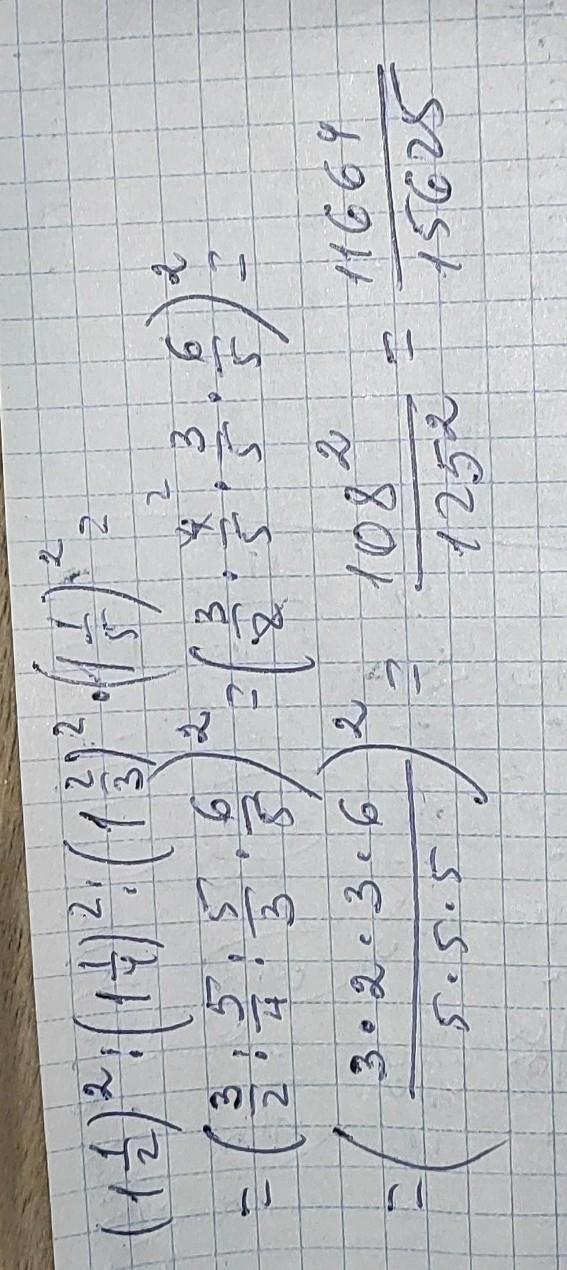 (1 1/2)² : (1 1/4)² : (1 2/3)² · (1 1/5)² 2
= (3/2 : 5/4 : 5/3 · 6/5)² = (3/2 · 4/5 · 3/5 · 6/5)² =
= (3·2·3·6 / 5·5·5)² = 108² / 125² = 11664 / 15625